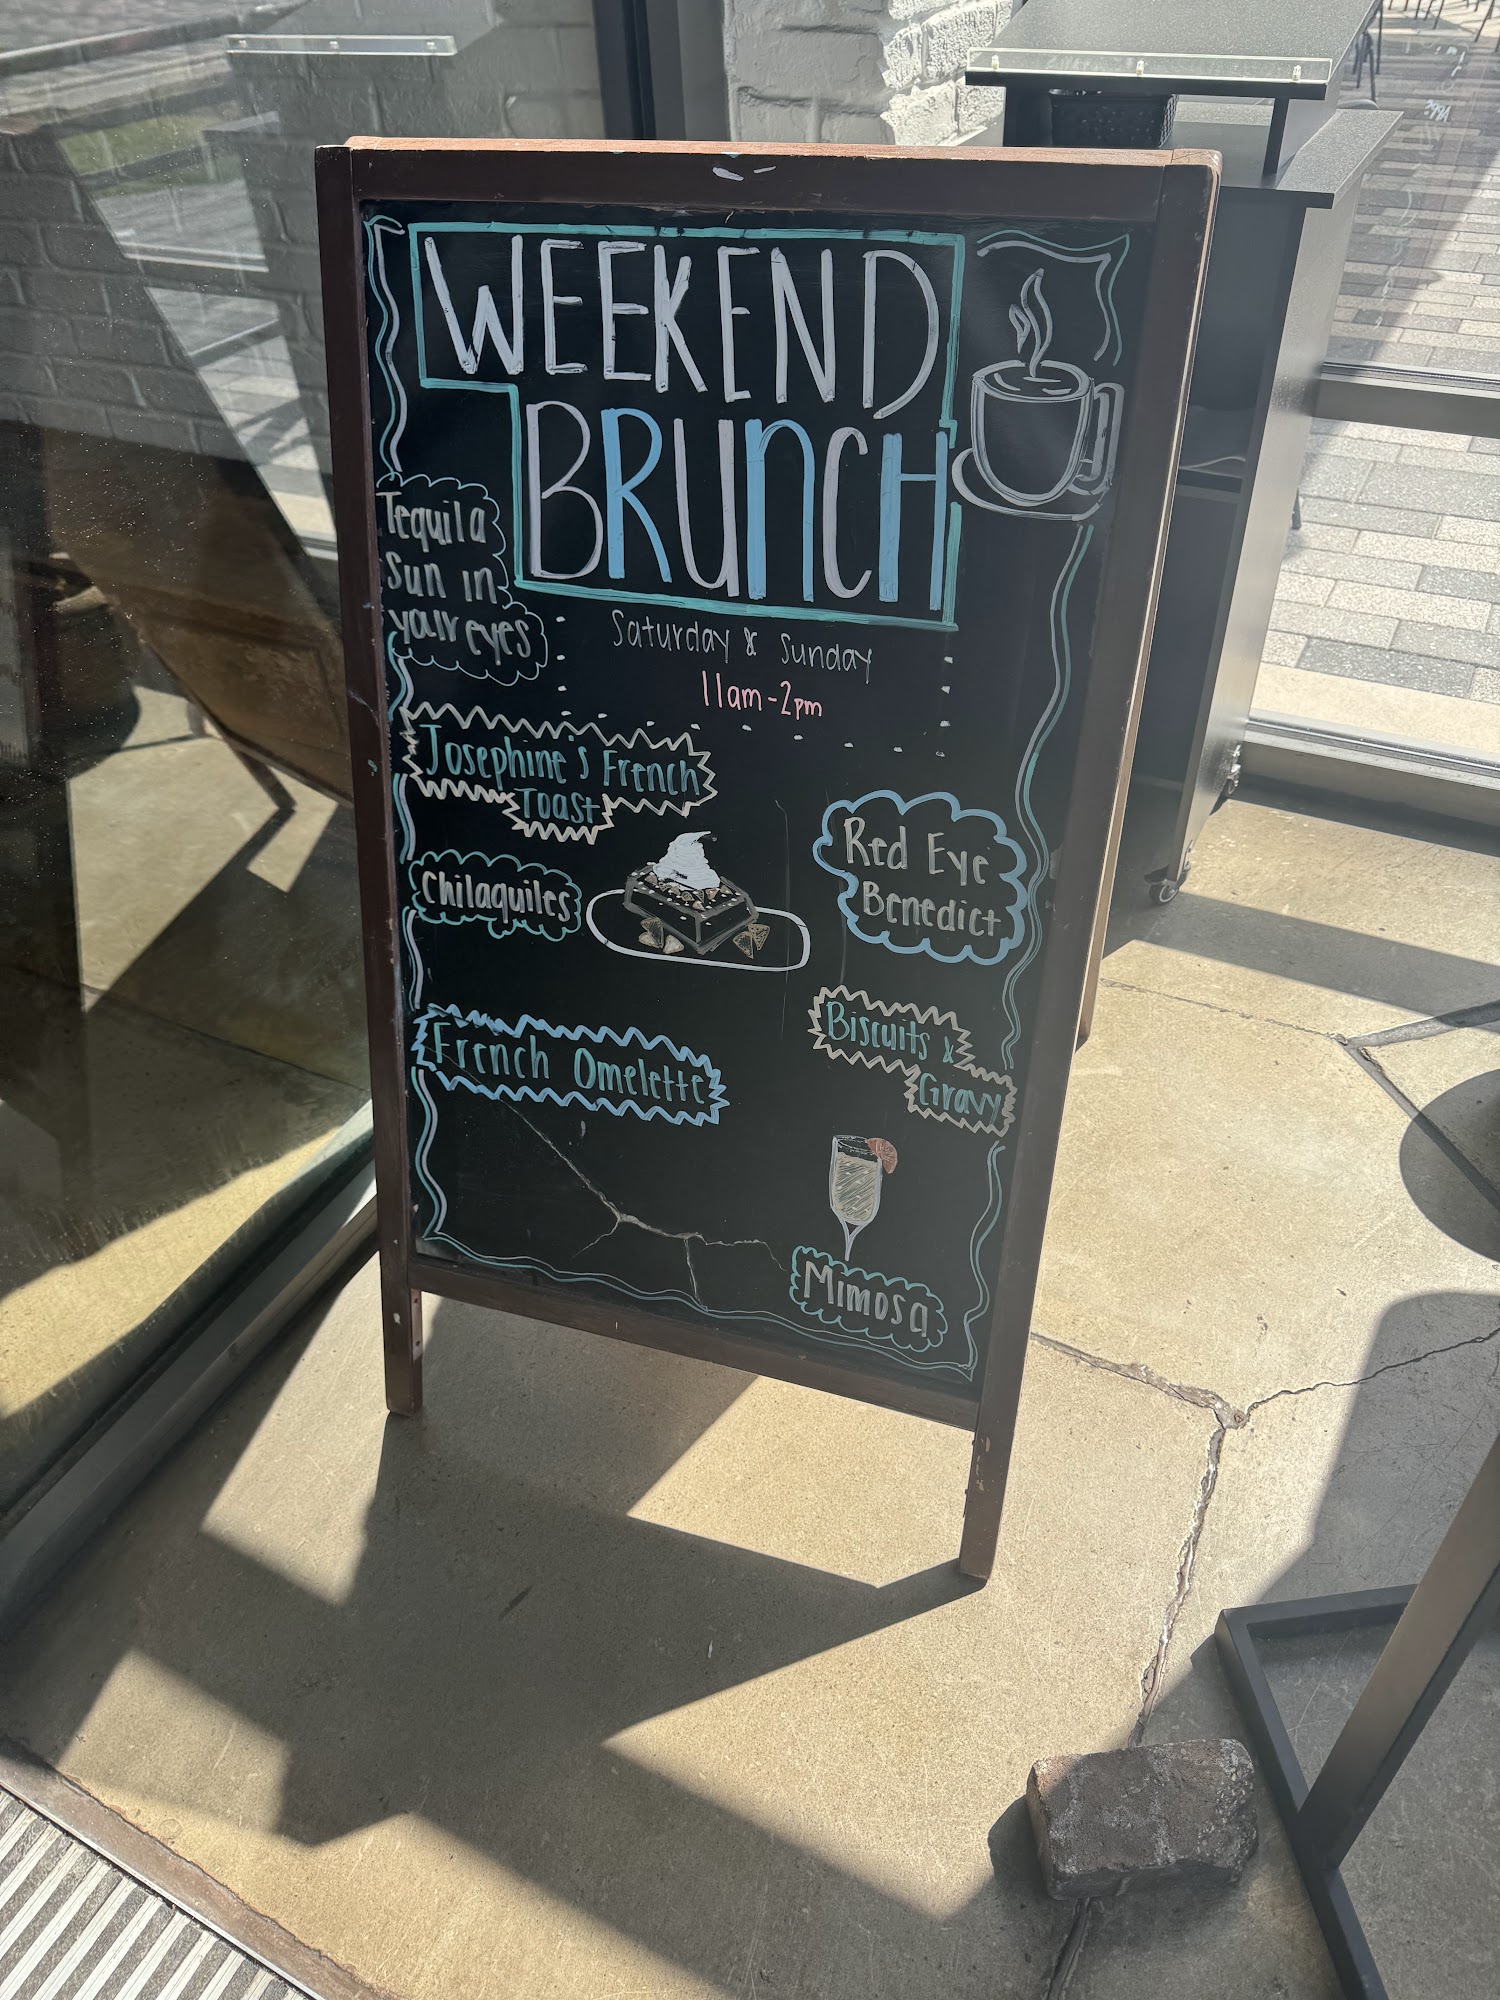 WEEKEND
BRUNCH
Saturday & Sunday
11am-2pm
Tequila
sun in
your eyes
Josephine's French
Toast
Chilaquiles
French Omelette
Red Eye
Benedict
Biscuits &
Gravy
Mimosa